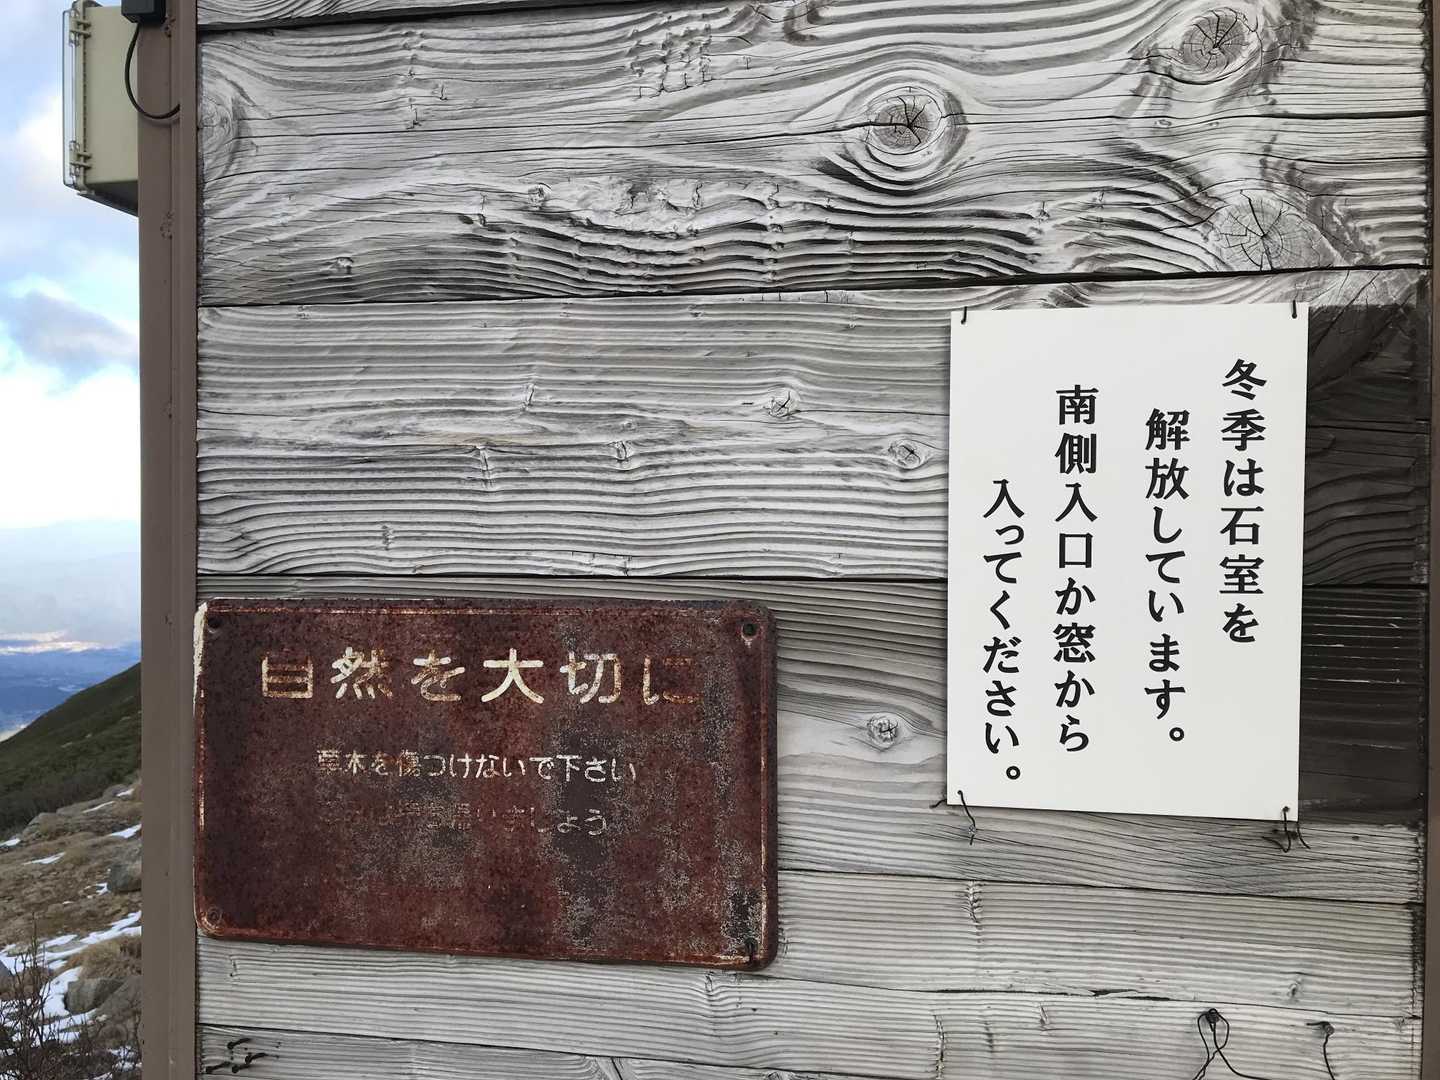 冬季は石室を
解放しています。
南側入口か窓から
入ってください。
自然を大切に
草木を傷つけないで下さい
いましょう